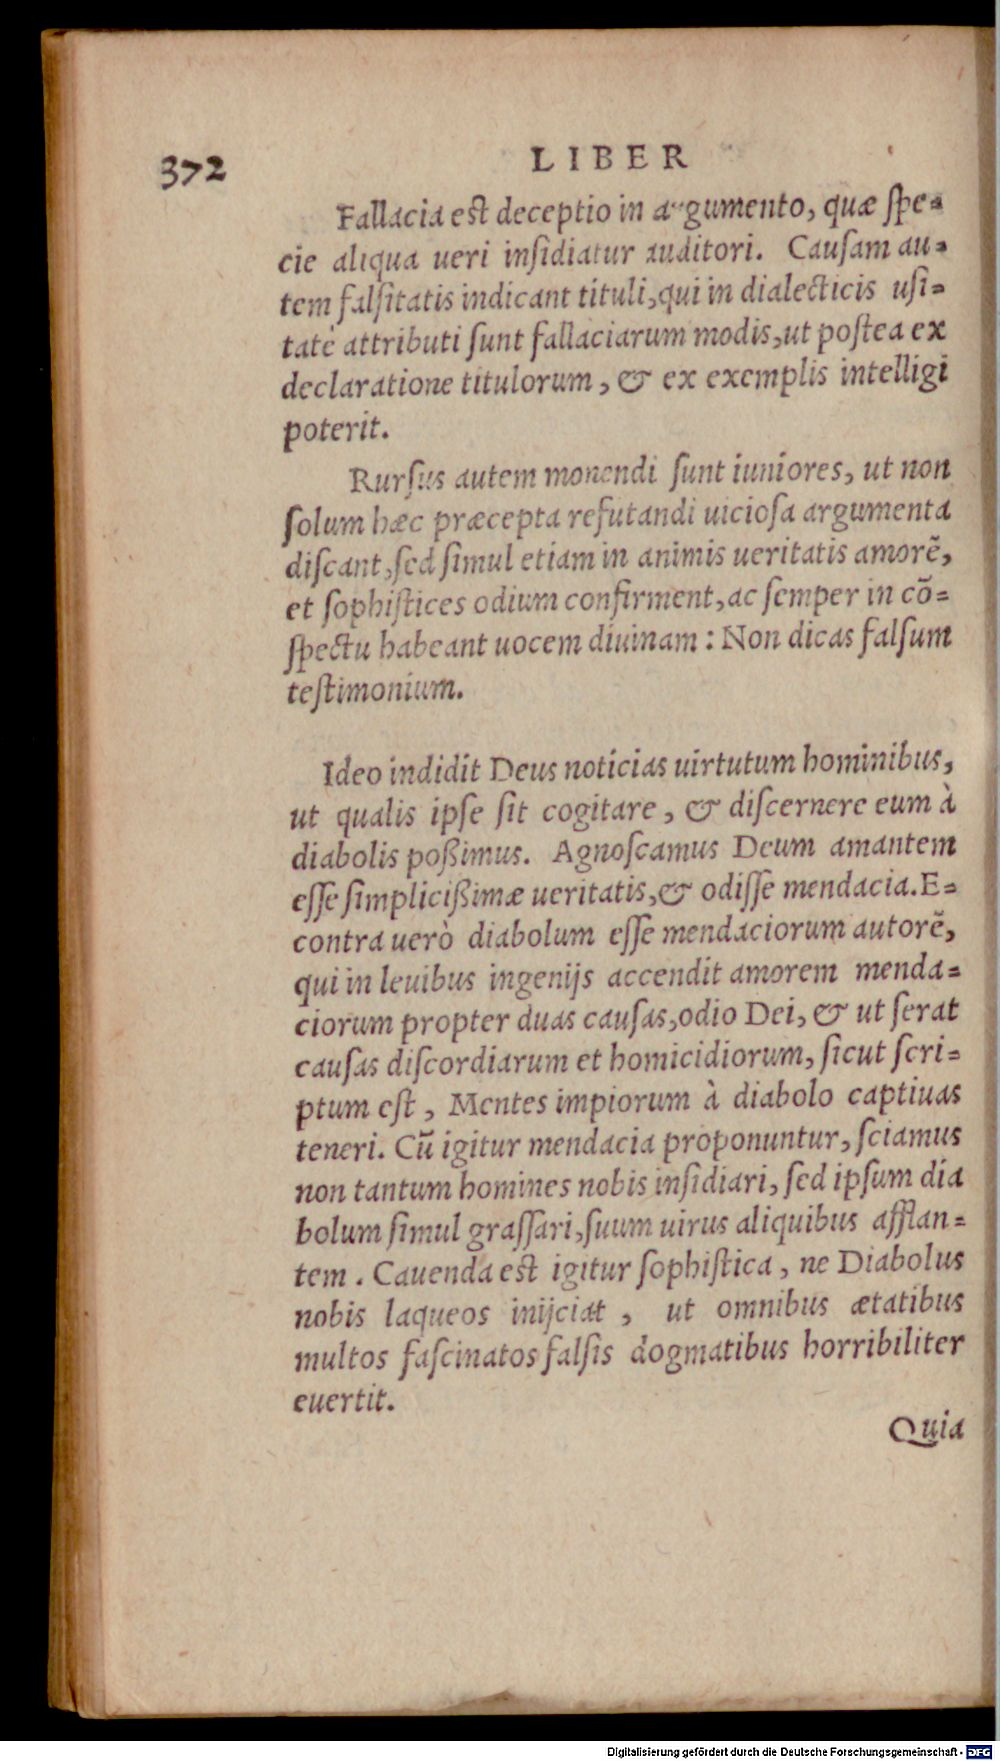 372 LIBER
Fallacia est deceptio in argumento, quæ spe-
cie aliqua ueri insidiatur auditori. Causam au-
tem falsitatis indicant tituli, qui in dialecticis usi-
tatè attributi sunt fallaciarum modis, ut postea ex
declaratione titulorum, & ex exemplis intelligi
poterit.
Rursus autem monendi sunt iuniores, ut non
solum hæc præcepta refutandi uiciosa argumenta
discant, sed simul etiam in animis ueritatis amorẽ,
et sophistices odium confirment, ac semper in cõ-
spectu habeant uocem diuinam: Non dicas falsum
testimonium.
Ideo indidit Deus noticias uirtutum hominibus,
ut qualis ipse sit cogitare, & discernere eum à
diabolis poßimus. Agnoscamus Deum amantem
esse simplicißimæ ueritatis, & odisse mendacia. E-
contra uerò diabolum esse mendaciorum autorẽ,
qui in leuibus ingenijs accendit amorem menda-
ciorum propter duas causas, odio Dei, & ut serat
causas discordiarum et homicidiorum, sicut scri-
ptum est, Mentes impiorum à diabolo captiuas
teneri. Cũ igitur mendacia proponuntur, sciamus
non tantum homines nobis insidiari, sed ipsum dia
bolum simul grassari, suum uirus aliquibus afflan-
tem. Cauenda est igitur sophistica, ne Diabolus
nobis laqueos inijciat, ut omnibus ætatibus
multos fascinatos falsis dogmatibus horribiliter
euertit.
Quia
Digitalisierung gefördert durch die Deutsche Forschungsgemeinschaft - DFG